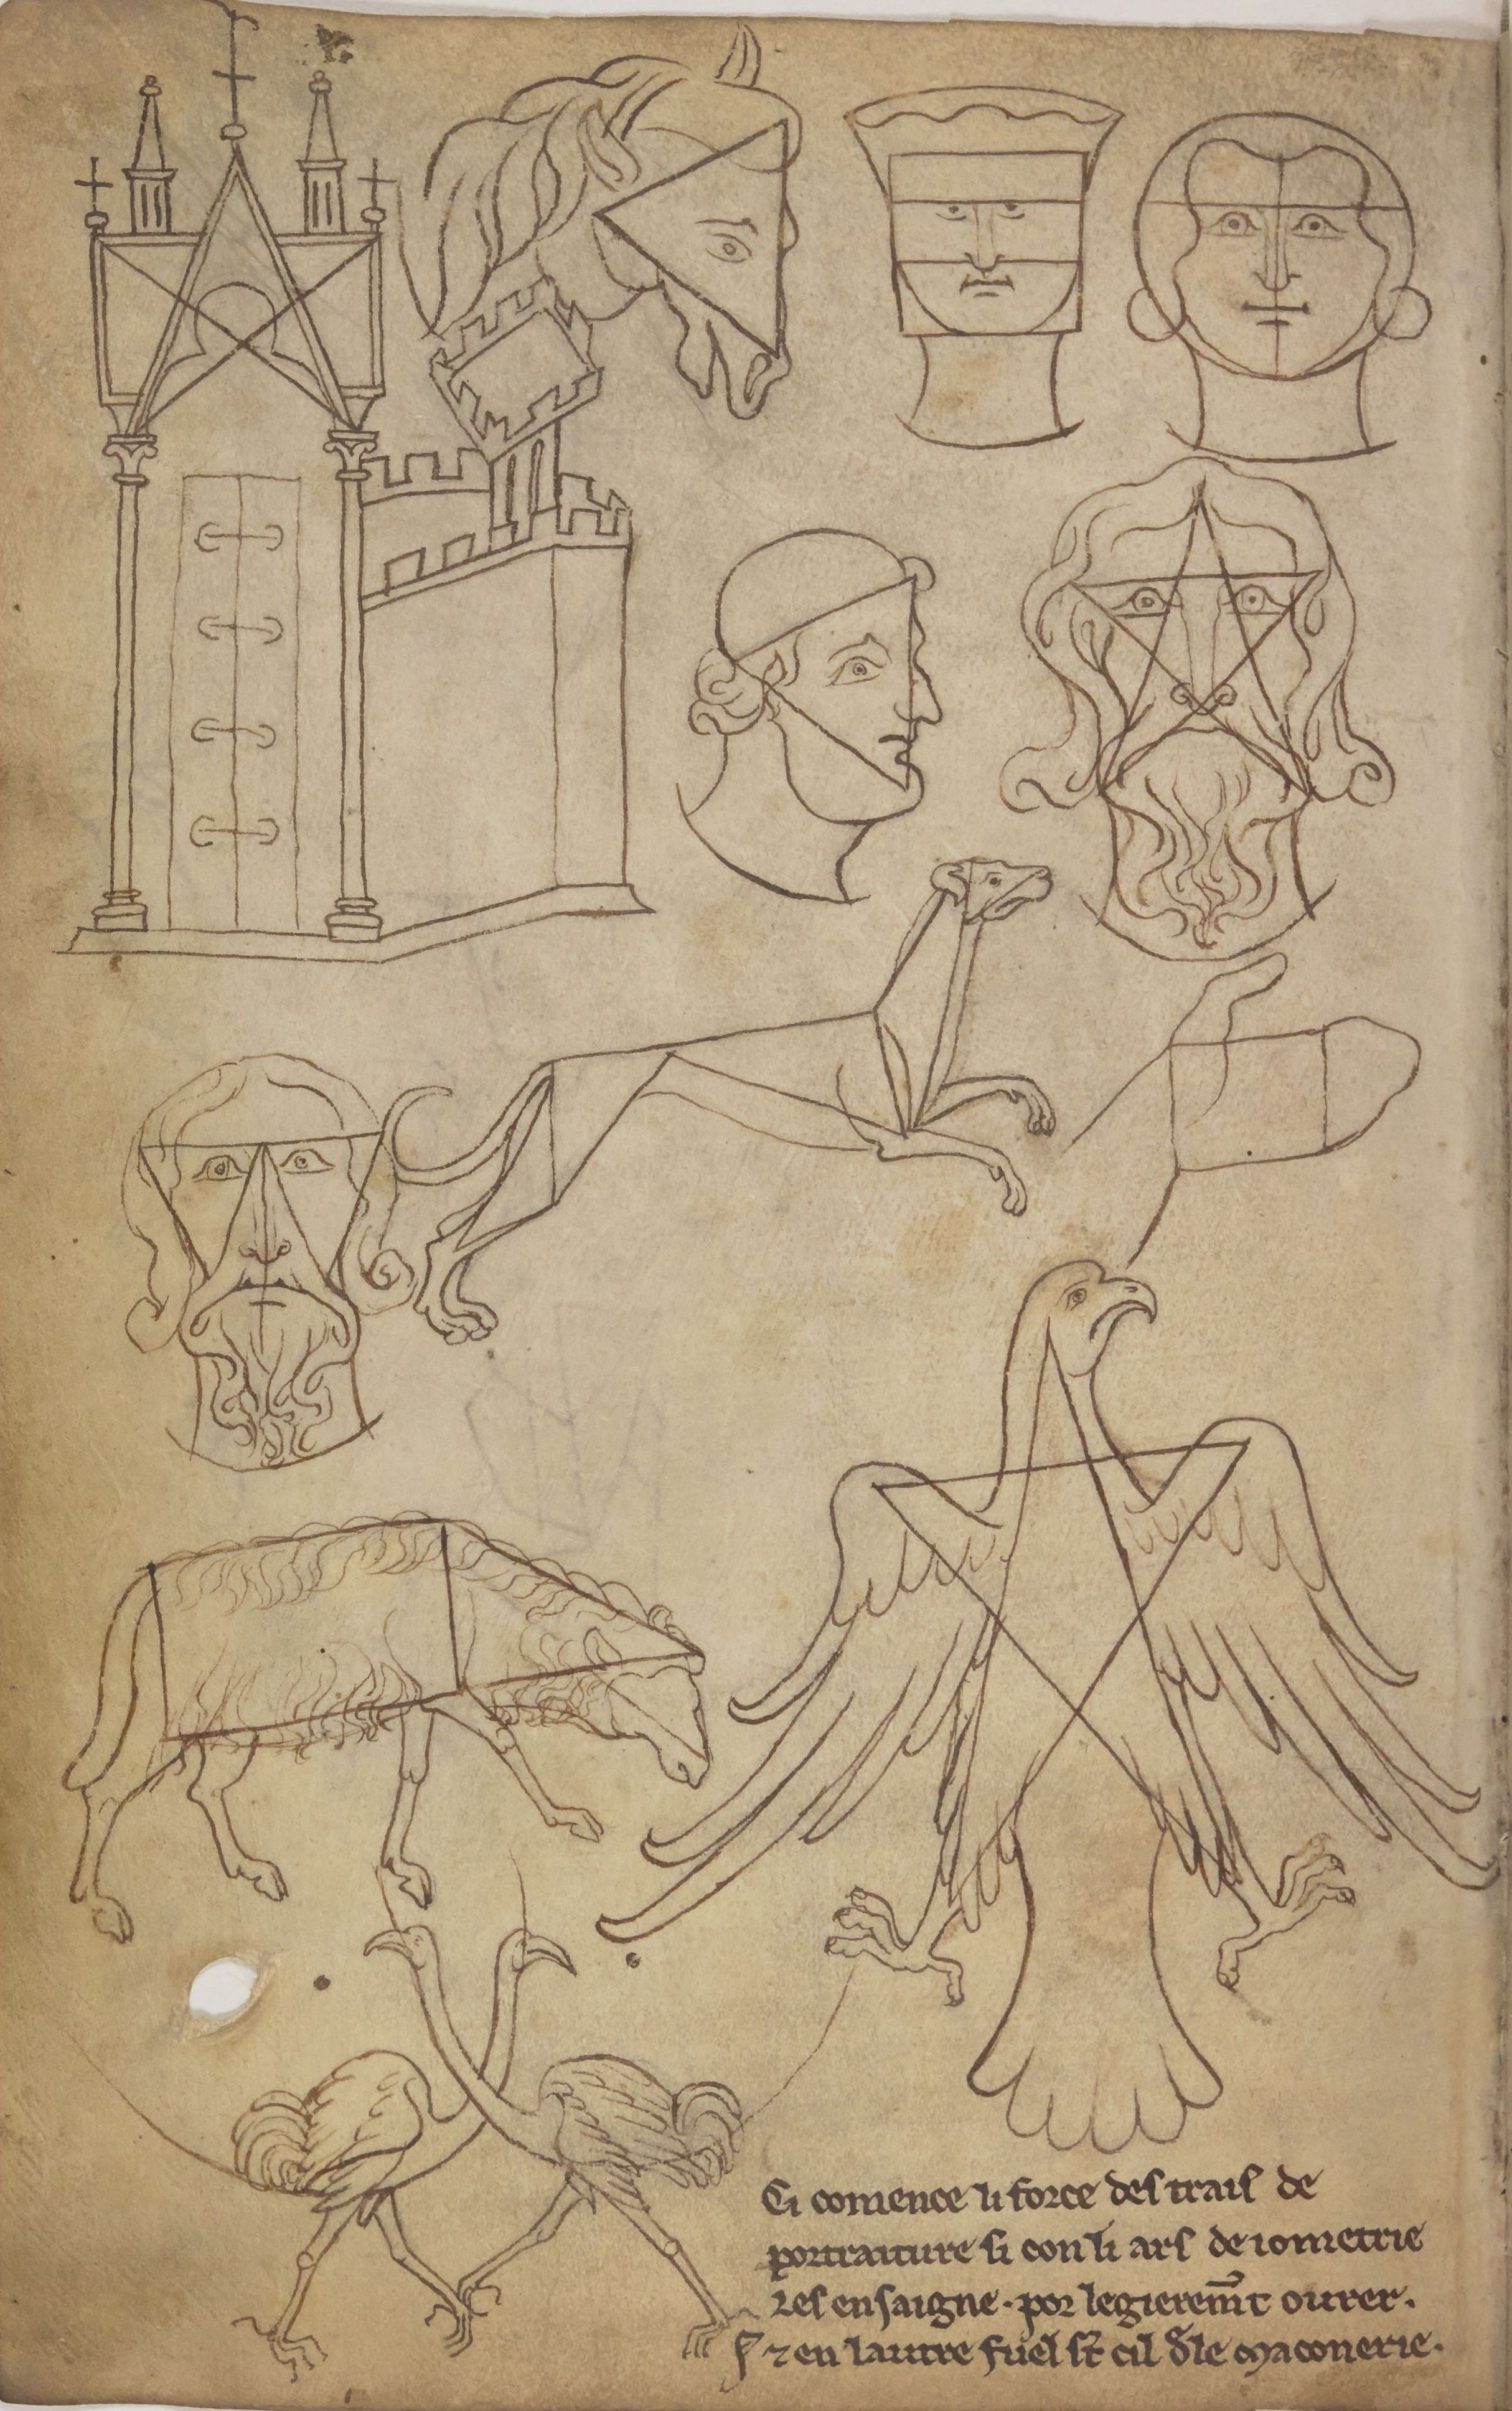 Ci comence li force des trais de
portraiture si con li ars de iometrie
les ensaigne · por legierem̄t ovrer ·
⁊ en lautre fuel st̄ cil dl̄e maconerie ·